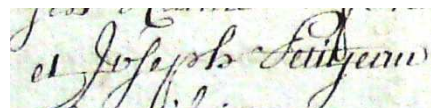 et Joseph Petitjean